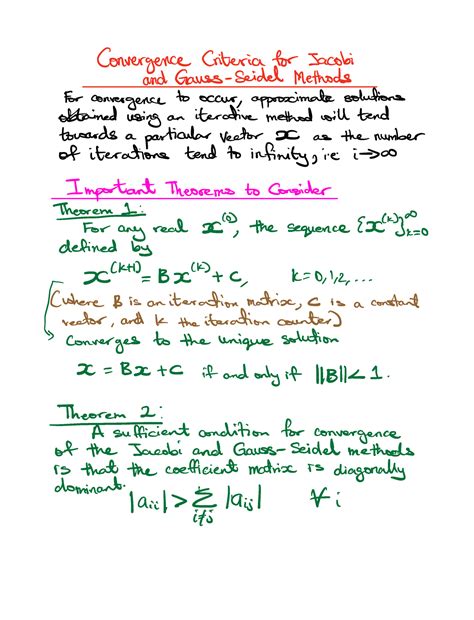 Convergence Criteria for Jacobi
and Gauss-Seidel Methods
For convergence to occur, approximate solutions
obtained using an iterative method will tend
towards a particular vector x as the number
of iterations tend to infinity, i.e i→∞
Important Theorems to Consider
Theorem 1:
For any real x^(0), the sequence {x^(k)}_{k=0}^∞
defined by
x^(k+1) = Bx^(k) + c, k = 0,1,2,...
(where B is an iteration matrix, c is a constant
vector, and k the iteration counter)
Converges to the unique solution
x = Bx + c if and only if ||B|| < 1.
Theorem 2:
A sufficient condition for convergence
of the Jacobi and Gauss-Seidel methods
is that the coefficient matrix is diagonally
dominant.
|a_ii| > Σ_{i≠j} |a_ij| ∀ i